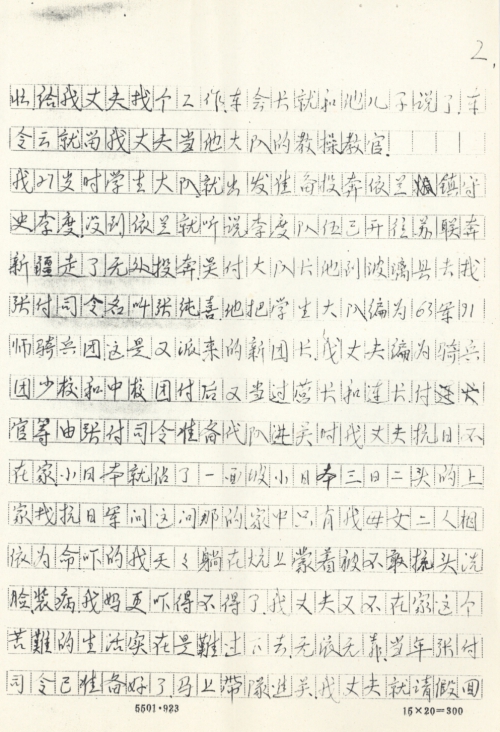 2.
长给我丈夫找个工作.车会长就和他儿子说了.车
令云就向我丈夫当他大队的教操教官.
我27岁时学生大队就出发准备投奔依兰镇守
史李度.没到依兰就听说李度队伍已开往苏联奔
新疆走了无处投奔.吴付大队长他到波璃县去找
张付司令名叫张纯善他把学生大队编为63军91
师骑兵团这是又派来的新团长.我丈夫编为骑兵
团少校和中校团付后又当过营长和连长.付
官等由张付司令准备代队进关时我丈夫抗日不
在家小日本就占了一面坡小日本三日二头的上
家找抗日军问这问那的家中只有我母女二人相
依为命吓的我天々躺在炕上蒙着被不敢抗头洗
脸装病.我妈更吓得不得了.我丈夫又不在家这个
苦难的生活实在是难过下去.无依无靠.当年张付
司令已准备好了.马上带队进关.我丈夫就请假回
5501·923
15×20=300